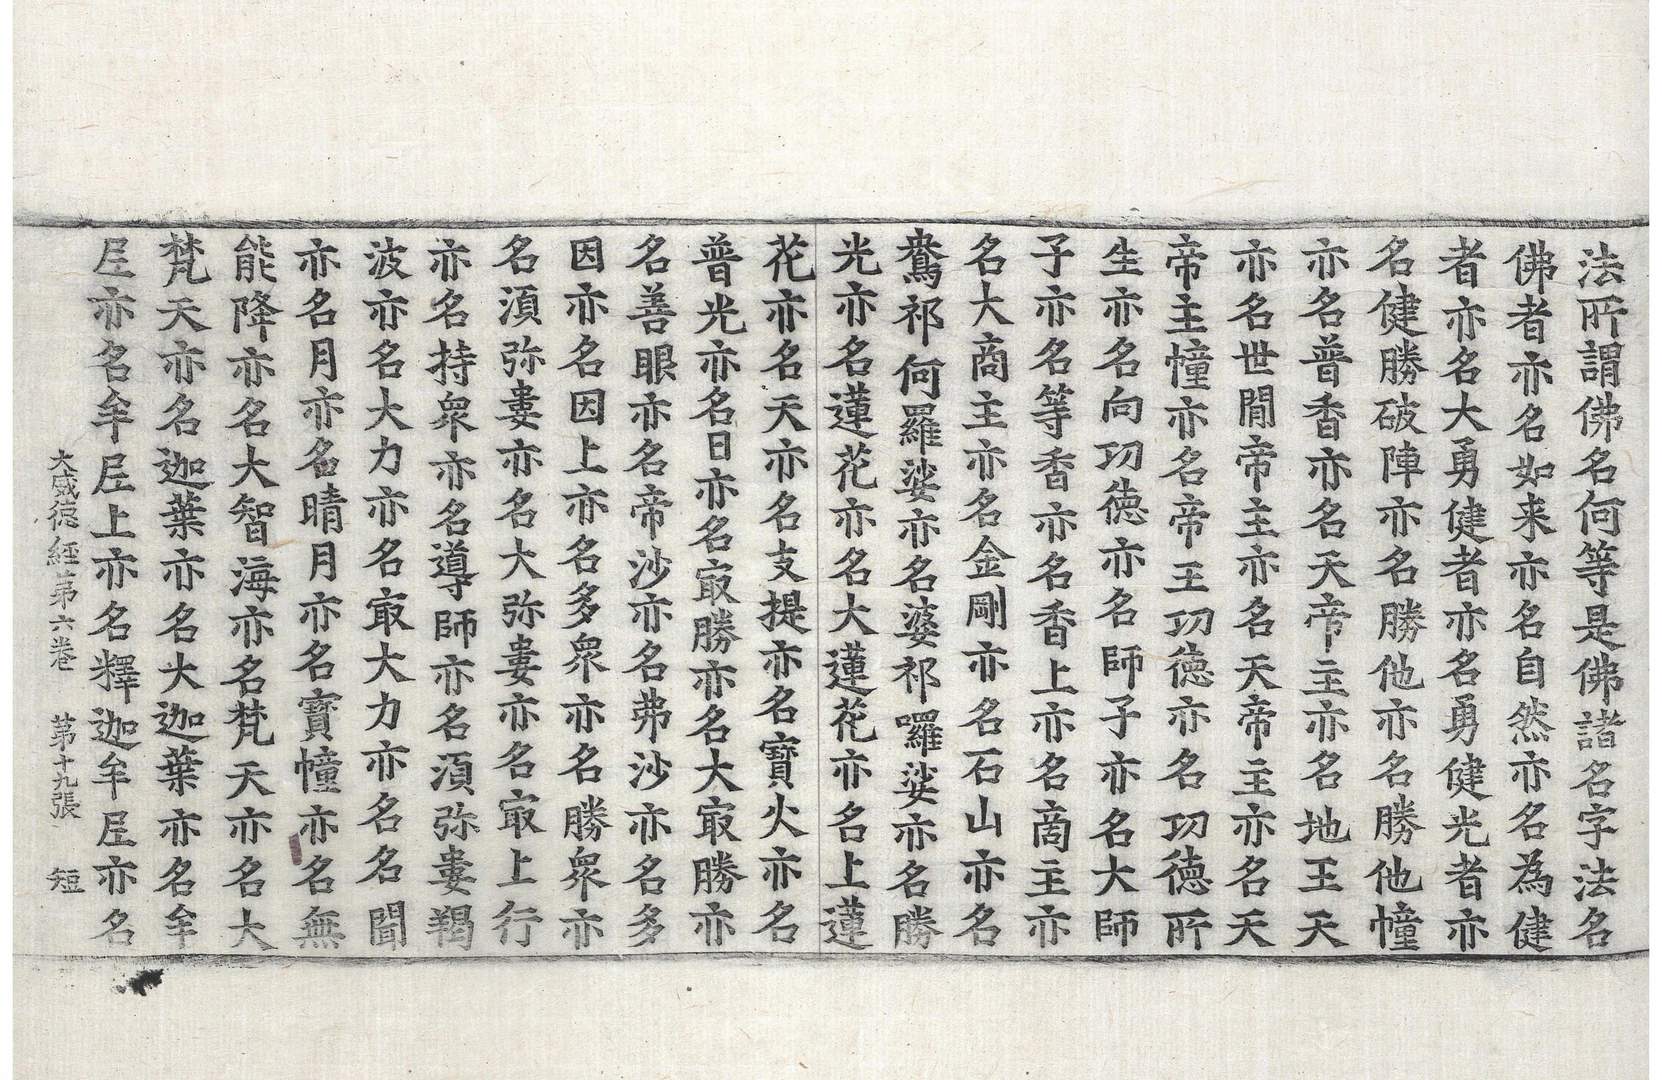 法所謂佛名何等是佛諸名字法名
佛者亦名如来亦名自然亦名為健
者亦名大勇健者亦名勇健光者亦
名健勝破陣亦名勝他亦名勝他幢
亦名普香亦名天帝主亦名地王天
亦名世間帝主亦名天帝主亦名天
帝主幢亦名帝王功德亦名功德所
生亦名向功德亦名師子亦名大師
子亦名等香亦名香上亦名啇主亦
名大商主亦名金剛亦名石山亦名
鴦祁何羅娑亦名婆祁囉娑亦名勝
光亦名蓮花亦名大蓮花亦名上蓮
花亦名天亦名支提亦名寶火亦名
普光亦名日亦名㝡勝亦名大㝡勝亦
名善眼亦名帝沙亦名弗沙亦名多
因亦名因上亦名多衆亦名勝衆亦
名湏弥婁亦名大弥婁亦名㝡上行
亦名持衆亦名導師亦名湏弥婁羯
波亦名大力亦名㝡大力亦名名聞
亦名月亦名晴月亦名寶幢亦名無
能降亦名大智海亦名梵天亦名大
梵天亦名迦葉亦名大迦葉亦名牟
尼亦名牟尼上亦名釋迦牟尼亦名
大威德經第六卷　第十九張　短